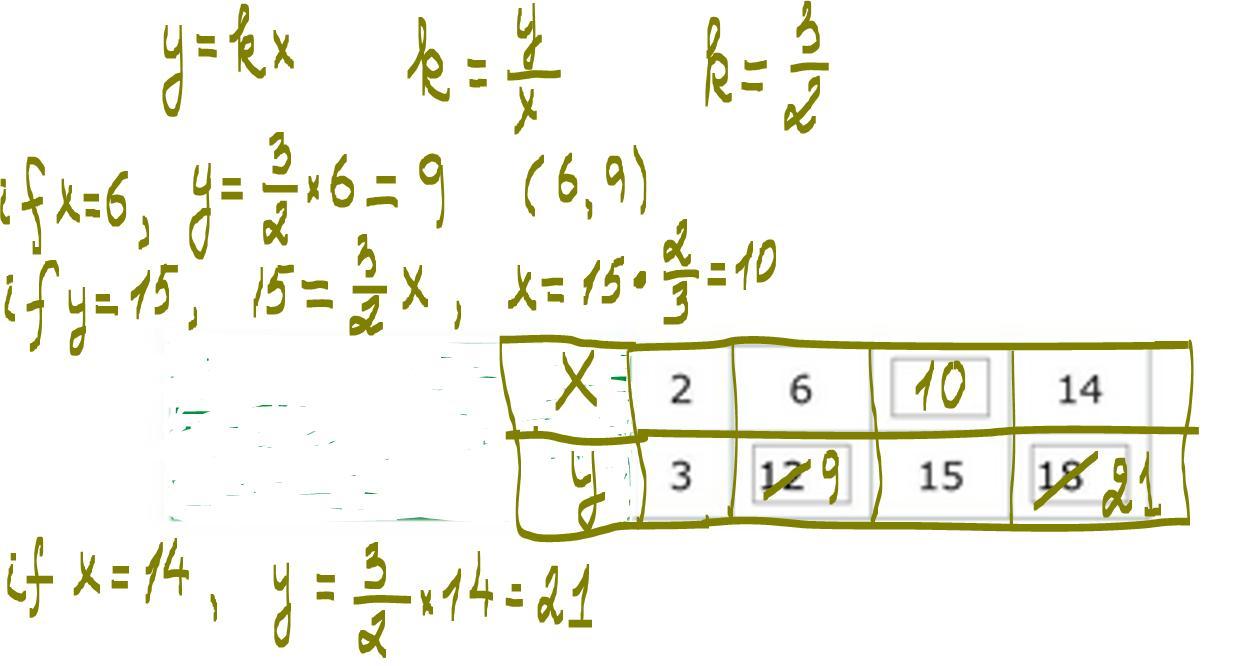 y = kx k = y/x k = 3/2
if x=6, y = 3/2 × 6 = 9 (6,9)
if y=15, 15 = 3/2 x, x = 15 · 2/3 = 10
X 2 6 10 14
y 3 12 9 15 18 21
if x = 14, y = 3/2 × 14 = 21